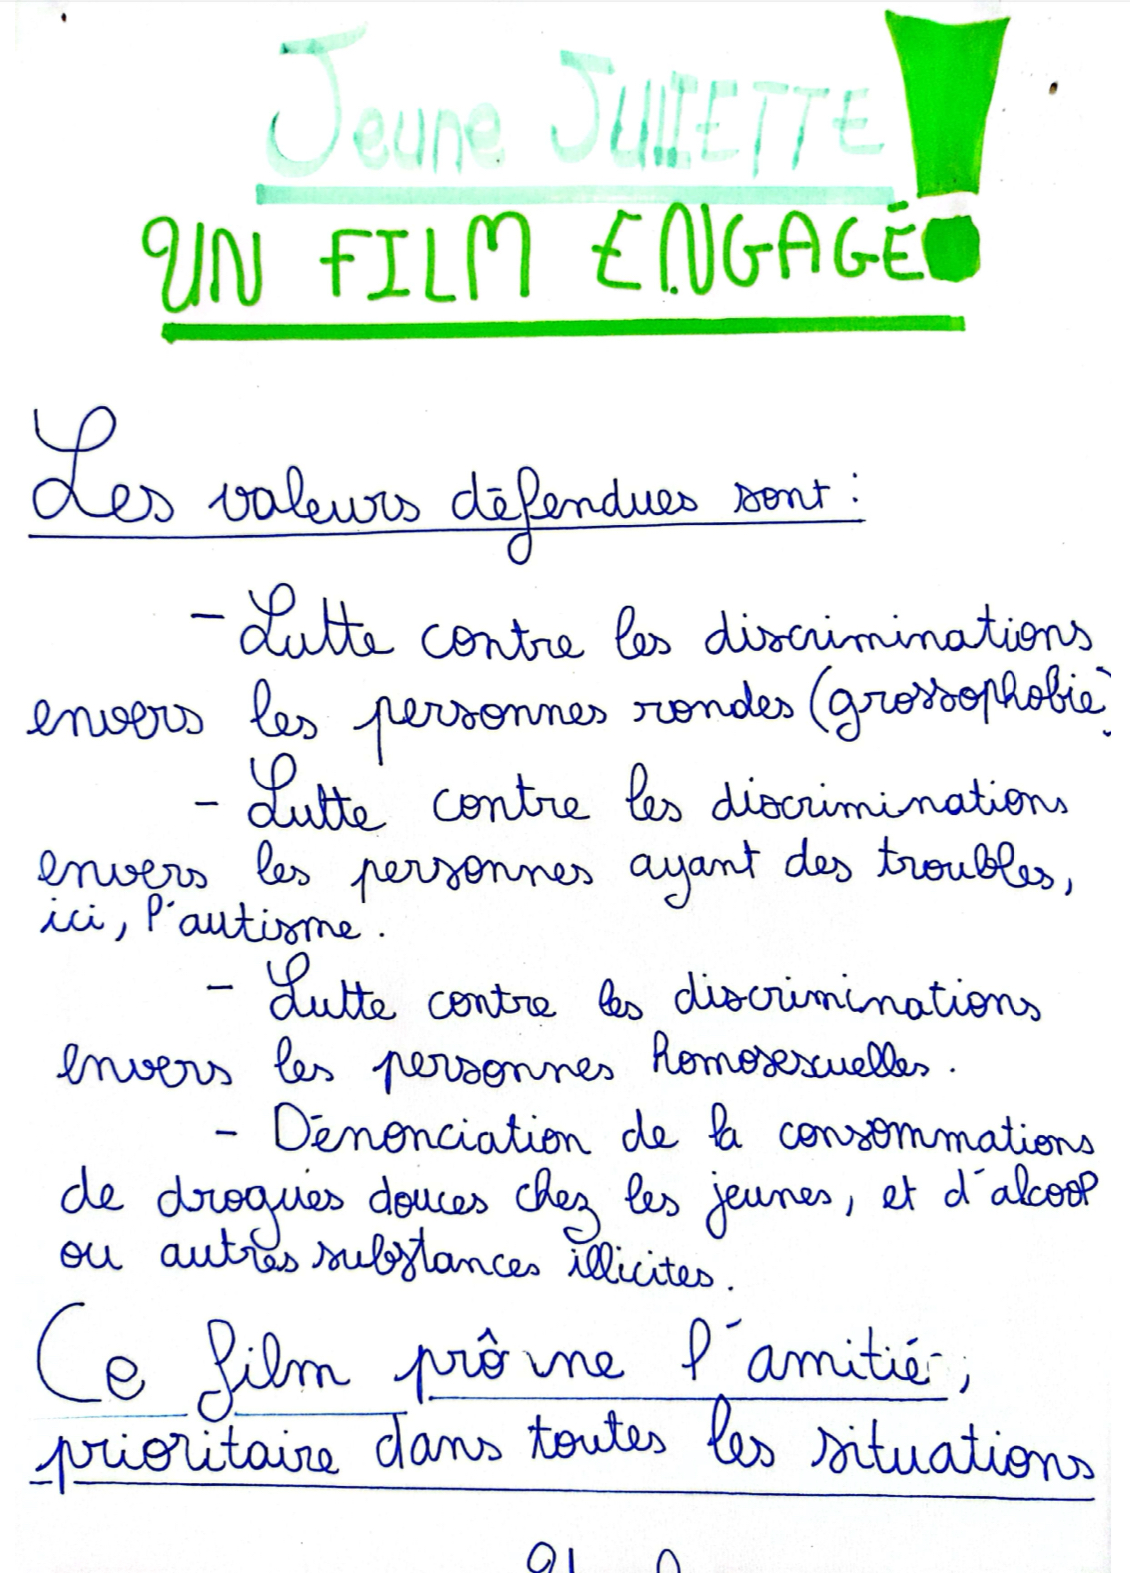 Jeune JULIETTE !
UN FILM ENGAGÉ
Les valeurs défendues sont :
- Lutte contre les discriminations
envers les personnes rondes (grossophobie)
- Lutte contre les discriminations
envers les personnes ayant des troubles,
ici, l'autisme.
- Lutte contre les discriminations
envers les personnes homosexuelles.
- Dénonciation de la consommations
de drogues douces chez les jeunes, et d'alcool
ou autres substances illicites.
Ce film prône l'amitié,
prioritaire dans toutes les situations